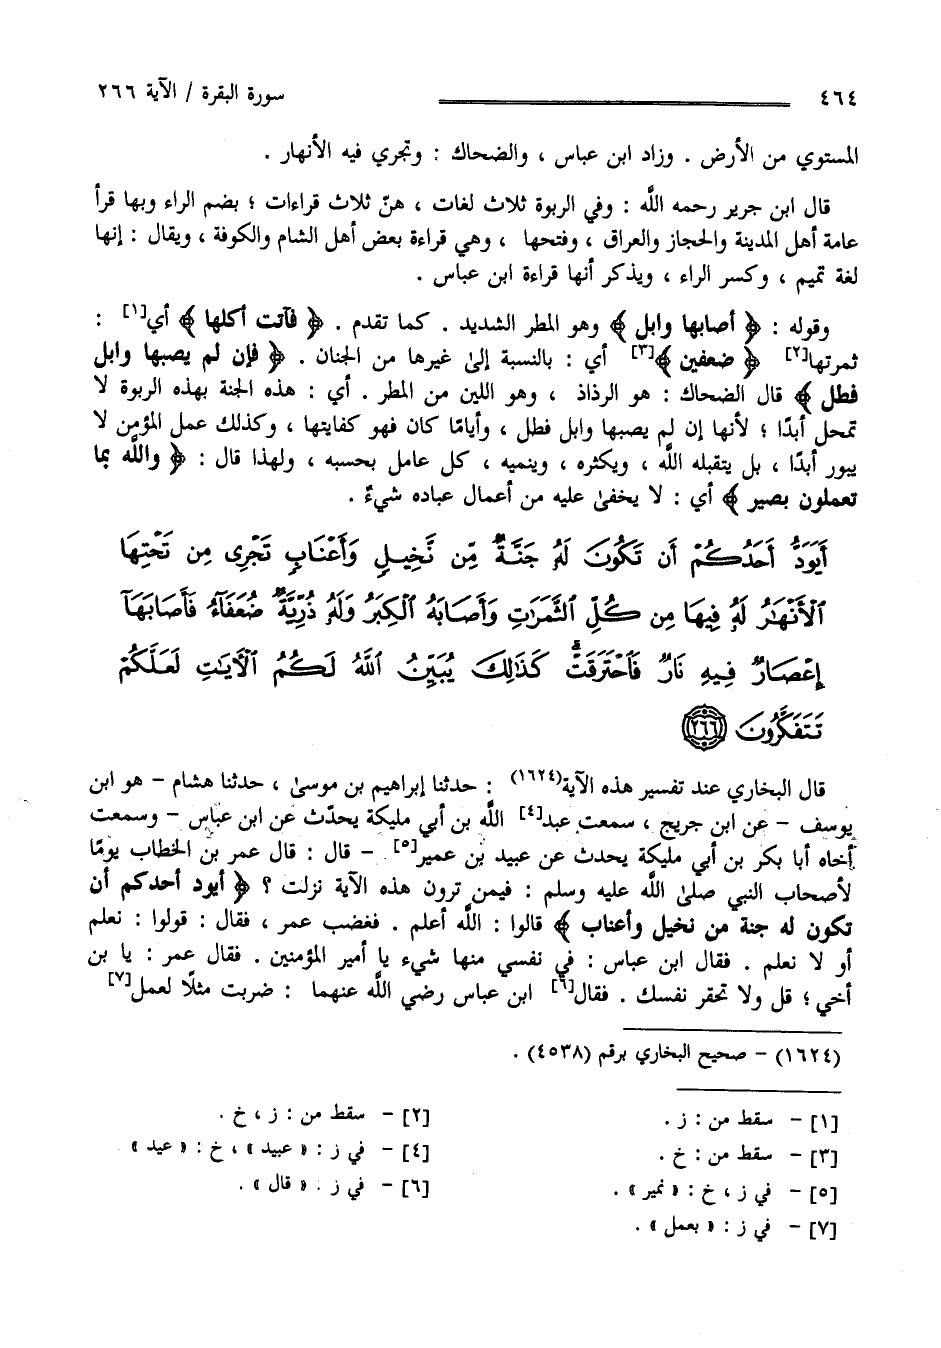 ٤٦٤ سورة البقرة / الآية ٢٦٦
المستوي من الأرض . وزاد ابن عباس ، والضحاك : وتجري فيه الأنهار .
قال ابن جرير رحمه الله : وفي الربوة ثلاث لغات ، هنّ ثلاث قراءات ؛ بضم الراء وبها قرأ
عامة أهل المدينة والحجاز والعراق ، وفتحها ، وهي قراءة بعض أهل الشام والكوفة ، ويقال : إنها
لغة تميم ، وكسر الراء ، ويذكر أنها قراءة ابن عباس .
وقوله : ﴿ أصابها وابل ﴾ وهو المطر الشديد . كما تقدم . ﴿ فآتت أكلها ﴾ أي[١] :
ثمرتها[٢] ﴿ ضعفين ﴾[٣] أي : بالنسبة إلىٰ غيرها من الجنان . ﴿ فإن لم يصبها وابل
فطل ﴾ قال الضحاك : هو الرذاذ ، وهو اللين من المطر . أي : هذه الجنة بهذه الربوة لا
تمحل أبدًا ؛ لأنها إن لم يصبها وابل فطل ، وأيامًا كان فهو كفايتها ، وكذلك عمل المؤمن لا
يبور أبدًا ، بل يتقبله الله ، ويكثره ، وينميه ، كل عامل بحسبه ، ولهذا قال : ﴿ والله بما
تعملون بصير ﴾ أي : لا يخفىٰ عليه من أعمال عباده شيءٌ .
أَيَوَدُّ أَحَدُكُمْ أَن تَكُونَ لَهُۥ جَنَّةٌ مِّن نَّخِيلٍ وَأَعْنَابٍ تَجْرِى مِن تَحْتِهَا
ٱلْأَنْهَٰرُ لَهُۥ فِيهَا مِن كُلِّ ٱلثَّمَرَٰتِ وَأَصَابَهُ ٱلْكِبَرُ وَلَهُۥ ذُرِّيَّةٌ ضُعَفَآءُ فَأَصَابَهَآ
إِعْصَارٌ فِيهِ نَارٌ فَٱحْتَرَقَتْ ۗ كَذَٰلِكَ يُبَيِّنُ ٱللَّهُ لَكُمُ ٱلْآيَٰتِ لَعَلَّكُمْ
تَتَفَكَّرُونَ ٢٦٦
قال البخاري عند تفسير هذه الآية(١٦٢٤) : حدثنا إبراهيم بن موسىٰ ، حدثنا هشام - هو ابن
يوسف - عن ابن جريج ، سمعت عبد[٤] الله بن أبي مليكة يحدّث عن ابن عباس - وسمعت
أخاه أبا بكر بن أبي مليكة يحدث عن عبيد بن عمير[٥] - قال : قال عمر بن الخطاب يومًا
لأصحاب النبي صلىٰ الله عليه وسلم : فيمن ترون هذه الآية نزلت ؟ ﴿ أيود أحدكم أن
تكون له جنة من نخيل وأعناب ﴾ قالوا : الله أعلم . فغضب عمر ، فقال : قولوا : نعلم
أو لا نعلم . فقال ابن عباس : في نفسي منها شيء يا أمير المؤمنين . فقال عمر : يا بن
أخي ؛ قل ولا تحقر نفسك . فقال[٦] ابن عباس رضي الله عنهما : ضربت مثلًا لعمل[٧]
(١٦٢٤) - صحيح البخاري برقم (٤٥٣٨) .
[١] - سقط من : ز . [٢] - سقط من : ز ، خ .
[٣] - سقط من : خ . [٤] - في ز : « عبيد » ، خ : « عيد »
[٥] - في ز ، خ : « نمير » . [٦] - في ز . « قال » .
[٧] - في ز : « بعمل » .